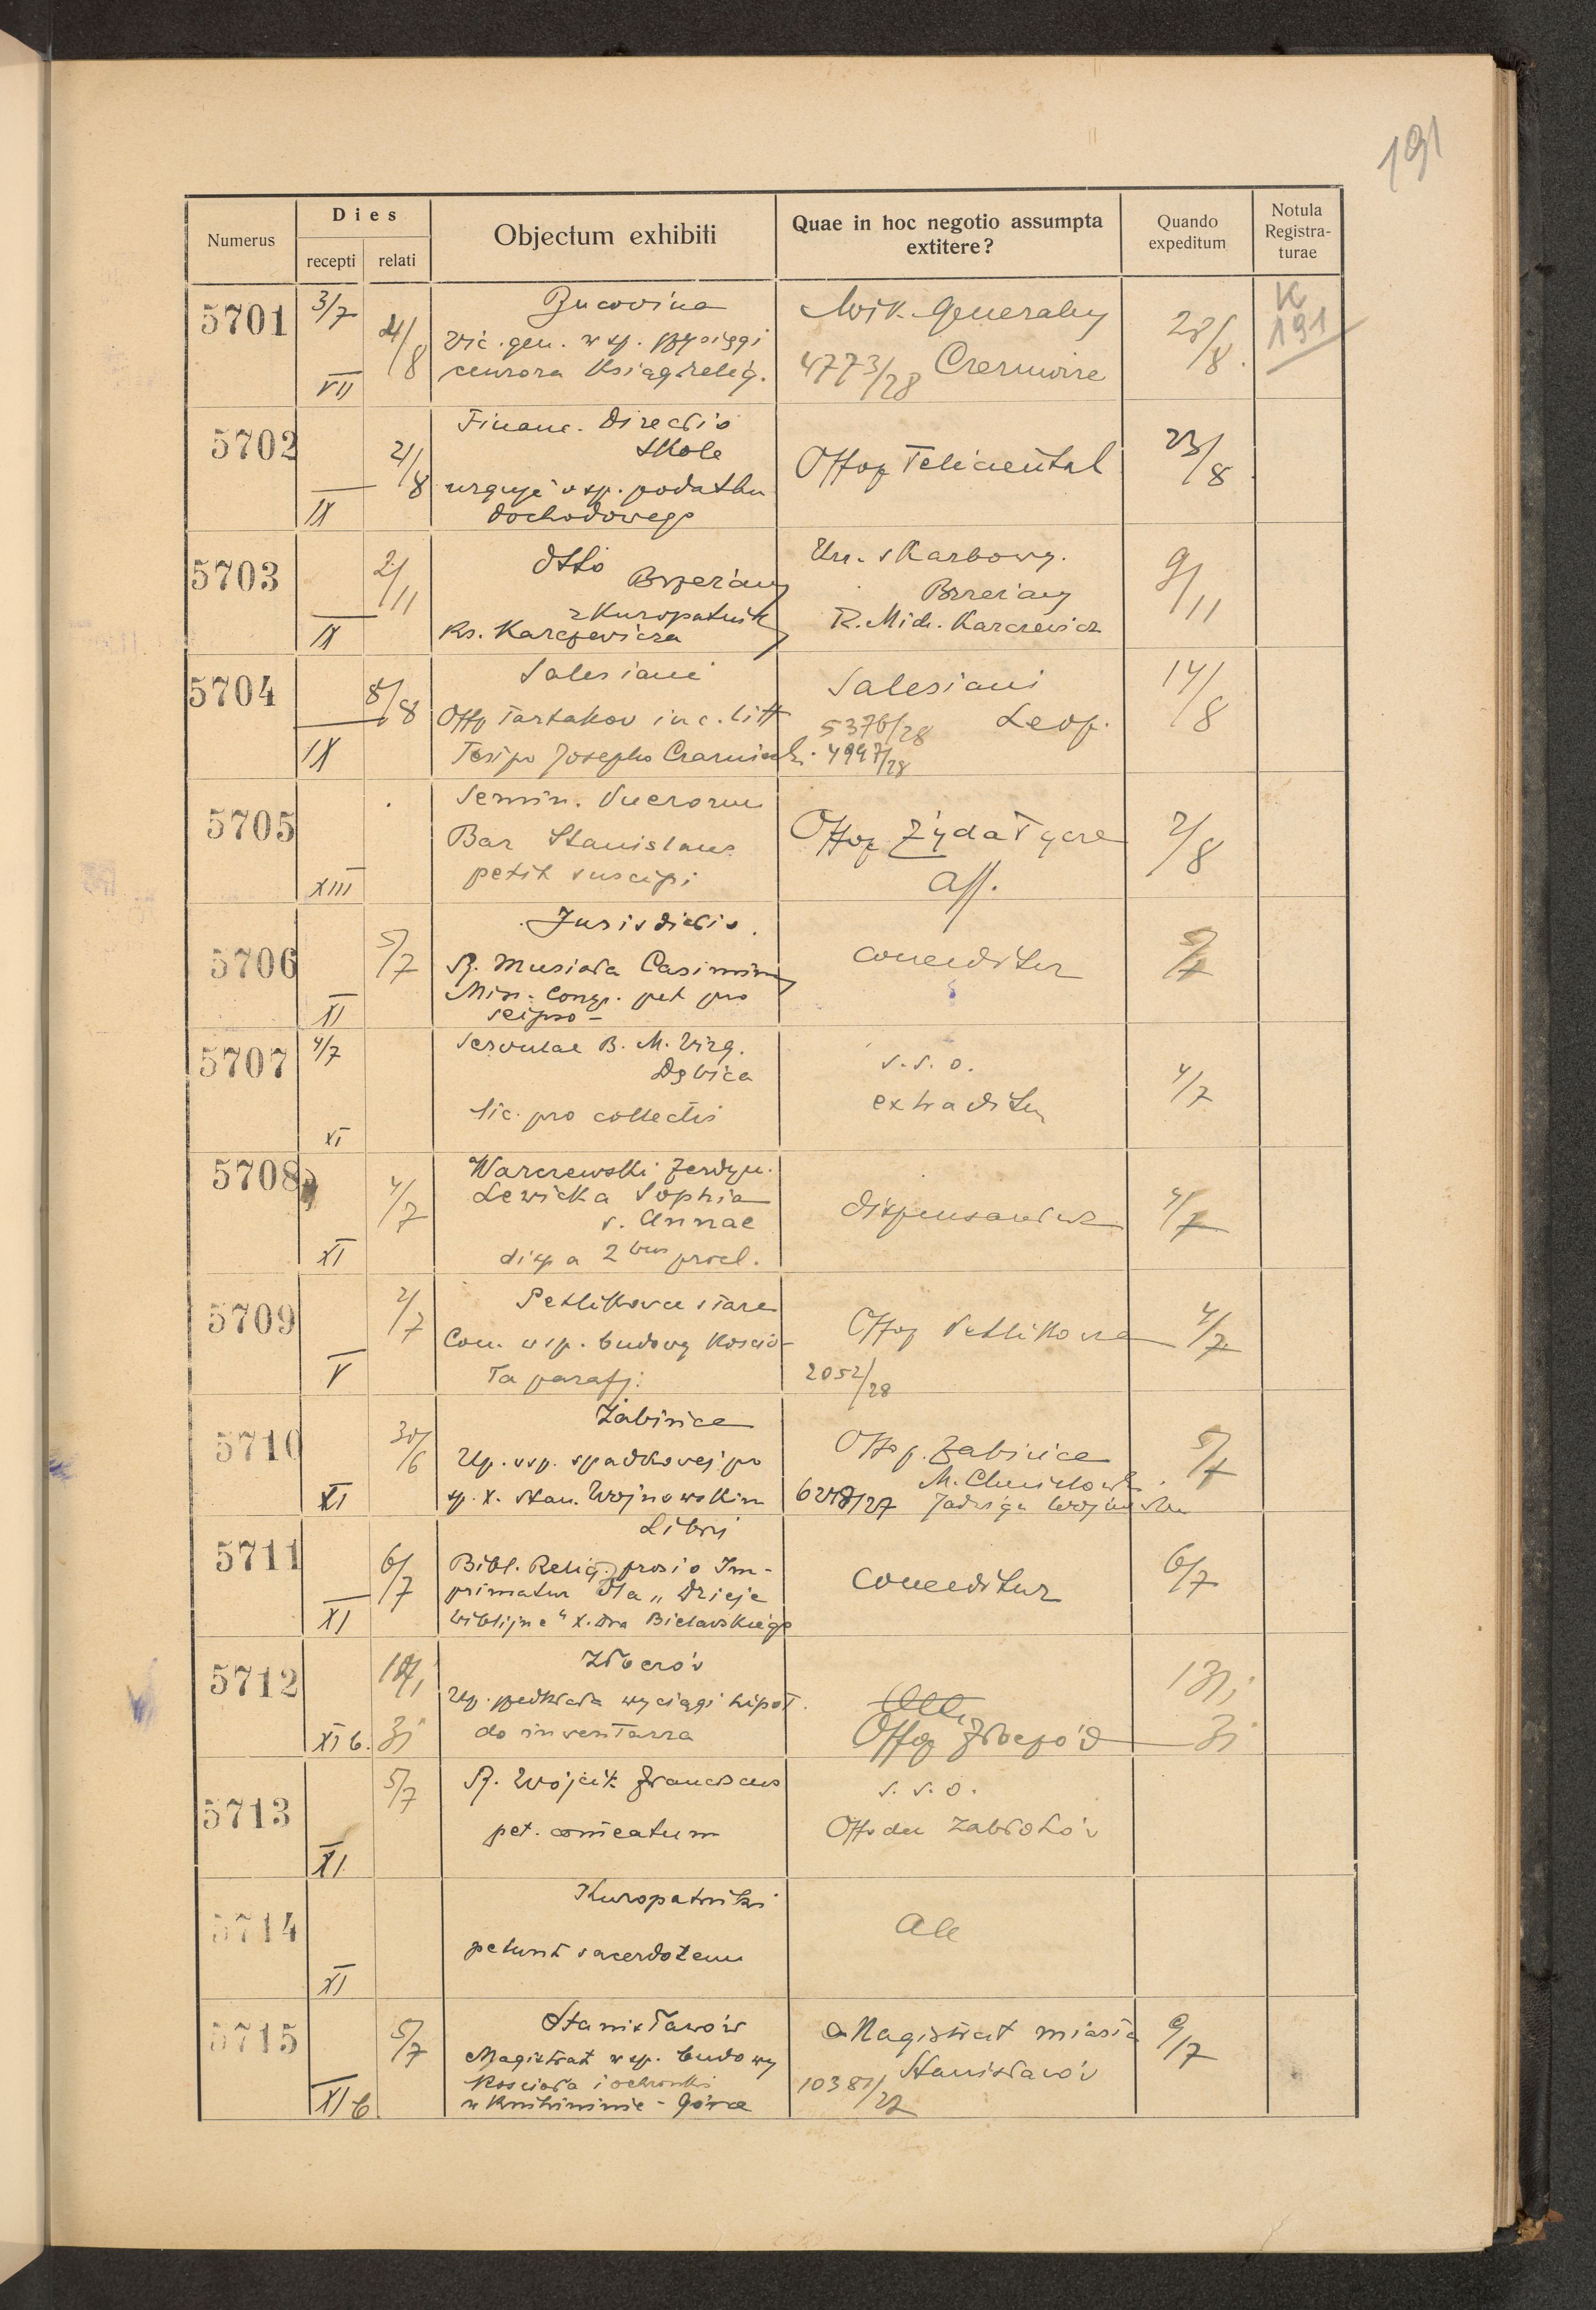 191
Numerus
Dies
recepti relati
Objectum exhibiti
Quae in hoc negotio assumpta
extitere?
Quando
expeditum
Notula
Registra-
turae
5701 3/7 VII 21/8
Bucovina
Vic. gen. w sp. przysięgi
cenzora Ksiąg relig.
Wik. Generalny
4773/28 Czerniowce
28/8.
K
191
5702 IX 2/8
Financ. Directio
Skole
urguje w sp. podatku
dochodowego
Offoq Felicienthal
23/8
5703 IX 2/11
dtto Brzeżany
z Kuropatnik
Ks. Karczewicza
Urz. skarbowy.
Brzeżany
R. Mich. Karczewicz
9/11
5704 IX 8/8
Salesiani
Offq Tartakov in c. litt
Josepho Czarnieck.
Salesiani
5376/28 Leop.
4947/28
14/8
5705 XIII
Semin. Puerorum
Bar Stanislaus
petit suscipi
Offoq Zydatycze
aff.
2/8
5706 XI 5/7
Jurisdictio.
R. Musioła Casimir
Miss. Cong. pet pro
seipso -
conceditur
5/7
5707 4/7 XI
Servulae B. M. Virg.
Dębica
lic. pro collectis
s. s. o.
extraditur
4/7
5708 XI 4/7
Warczewski Ferdyn.
Lewicka Sophia
s. Annae
disp a 2bus procl.
dispensantur
4/7
5709 V 2/7
Petlikowce stare
Com. w sp. budowy kościo-
ła parafj.
Offoq Petlikowce
2052/28
4/7
5710 XI 30/6
Żabińce
Up. w sp. spadkowej po
sp. X. Stan. Wojnowskim
Offoq. Żabińce
M.
/27 Jadwiga
5/7
5711 XI 6/7
Libri
Bibl. Relig. prosi o Im-
primatur dla „Dzieje
biblijne" X. Dra Bielawskiego
conceditur
6/7
5712 XI b. 3j
Zborów
Up. przedkłada wyciągi hipot.
do inwentarza
Offoq Zborów
13/j
3j
5713 XI 5/7
R. Wójcik Franciscus
pet. comeatum
s. s. o.
Offo den Zabłotów
5714 XI
Kuropatniki
petunt sacerdotem
All
5715 XI b 5/7
Stanisławów
Magistrat w sp. budowy
kościoła i ochronki
w Knihininie - Górce
Magistrat miasta
Stanisławów
10381/27
9/7